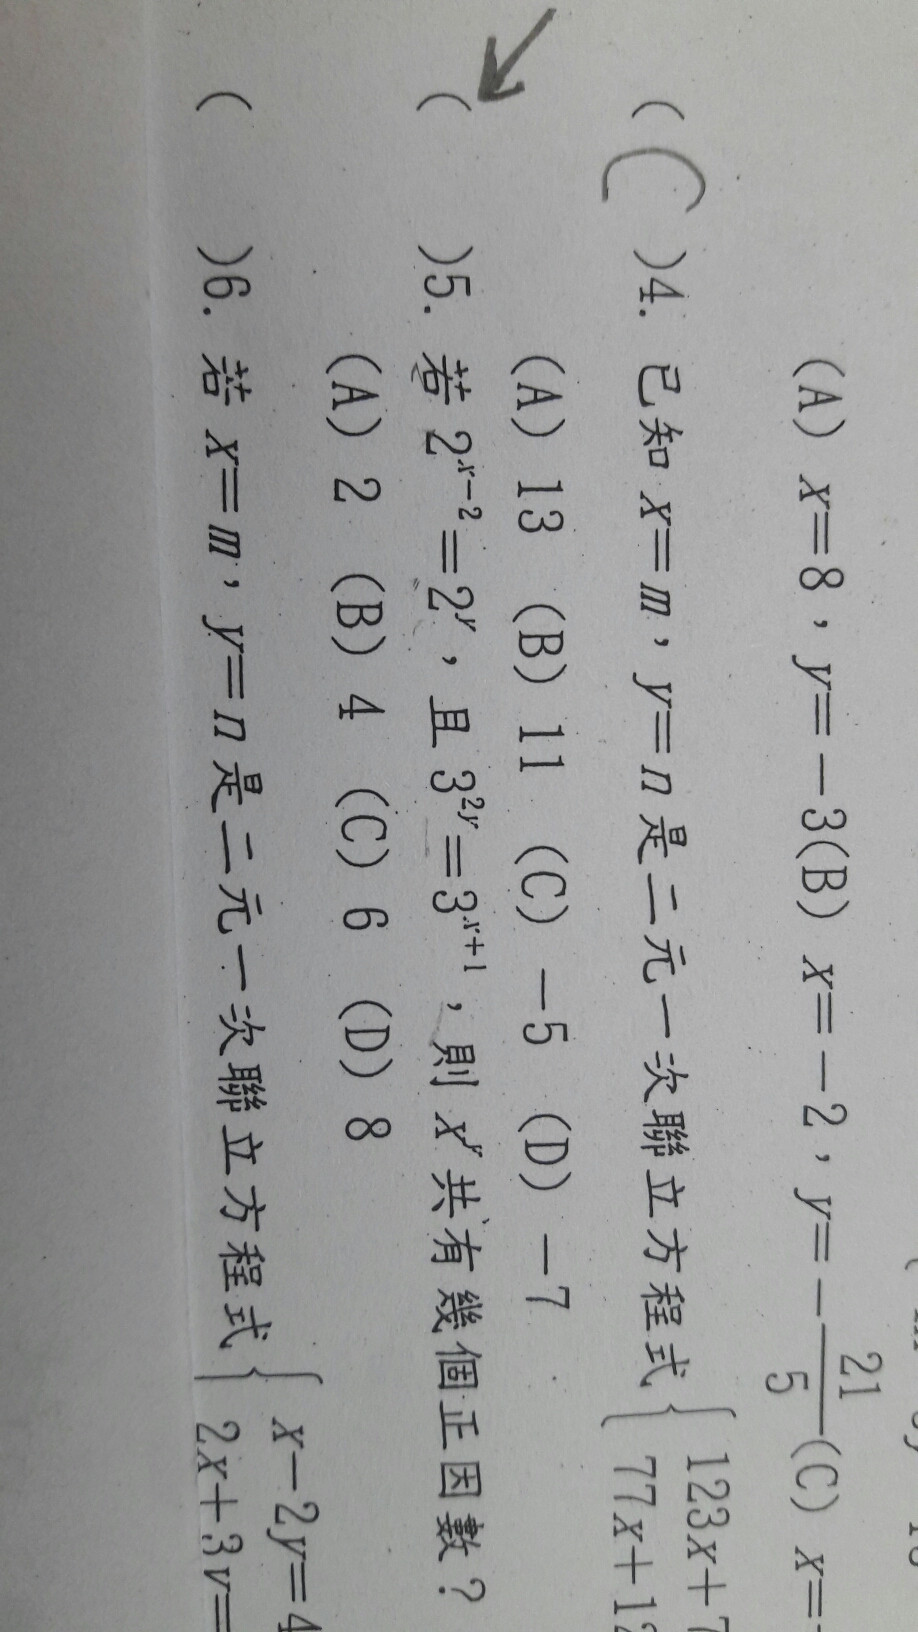 (A) x=8，y=－3(B) x=－2，y=－21/5(C) x=
(C)4. 已知 x=m，y=n 是二元一次聯立方程式{123x+7
77x+12
(A) 13 (B) 11 (C) －5 (D) －7
( )5. 若 2^(x－2)=2^y，且 3^(2y)=3^(x+1)，則 x^y 共有幾個正因數？
(A) 2 (B) 4 (C) 6 (D) 8
( )6. 若 x=m，y=n 是二元一次聯立方程式{x－2y=4
2x+3y=